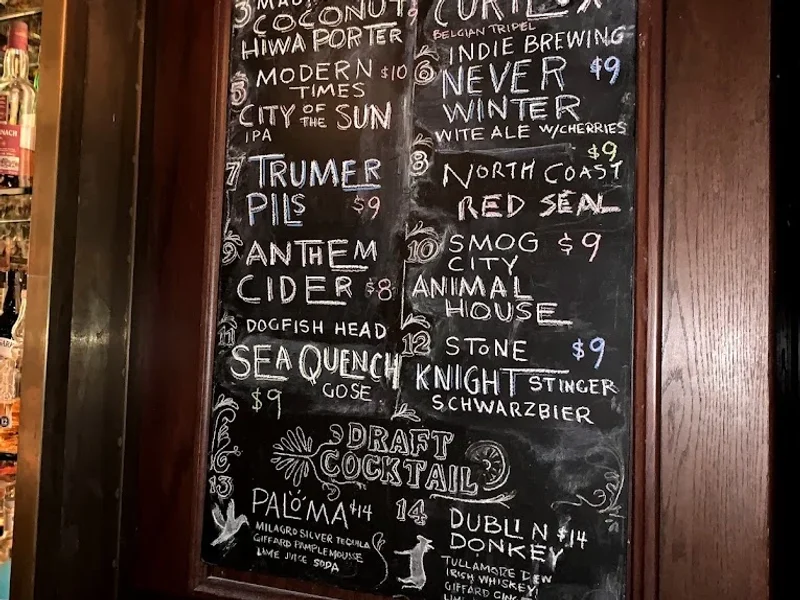 3
COCONUT
HIWA PORTER
5 MODERN $10
TIMES
CITY OF THE SUN
IPA
7 TRUMER
PILS $9
9 ANTHEM
CIDER $8
11 DOGFISH HEAD
SEA QUENCH
GOSE
$9
BELGIAN TRIPEL
INDIE BREWING
6 NEVER $9
WINTER
WITE ALE W/CHERRIES
$9
8 NORTH COAST
RED SEAL
10 SMOG $9
CITY
ANIMAL
HOUSE
12 STONE $9
KNIGHT STINGER
SCHWARZBIER
DRAFT
COCKTAIL
13
PALOMA $14
MILAGRO SILVER TEQUILA
GIFFARD PAMPLEMOUSSE
LIME JUICE SODA
14 DUBLIN $14
DONKEY
TULLAMORE DEW
IRISH WHISKEY
GIFFARD